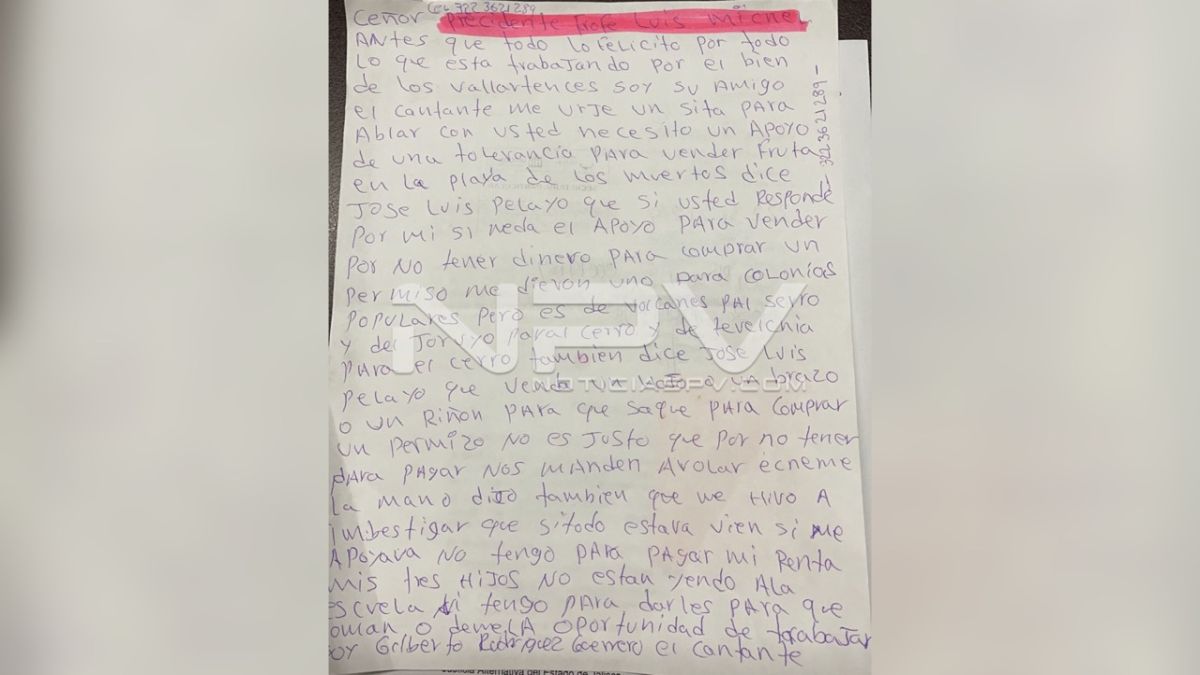 cel 322 3621289
Ceñor Precidente Profe Luis Michel
Antes que todo lo felicito por todo
lo que esta trabajando por el bien
de los vallartences soy su amigo
el cantante me urje un sita para
Ablar con usted necesito un Apoyo
de una tolerancia para vender fruta
en la playa de los muertos dice
Jose Luis Pelayo que si usted Responde
por mi si meda el Apoyo para vender
por no tener dinero para comprar un
permiso me dieron uno para colonias
populares pero es de volcanes pal serro
y del para el cerro y de
para el cerro tambien dice Jose Luis
pelayo que venda un o un brazo
o un Riñon para que saque para comprar
un permizo no es justo que por no tener
para pagar nos manden Avolar ecneme
la mano dijo tambien que me Hivo A
imbestigar que sitodo estava vien si me
Apoyava no tengo para pagar mi Renta
mis tres Hijos no estan yendo Ala
escuela ni tengo para darles para que
coman o demela oportunidad de trabajar
soy Gilberto Rodriguez Guerrero el cantante
322 3621289-
NPV
NOTICIASPV.COM
Justicia Alternativa del Estado de Jalisco